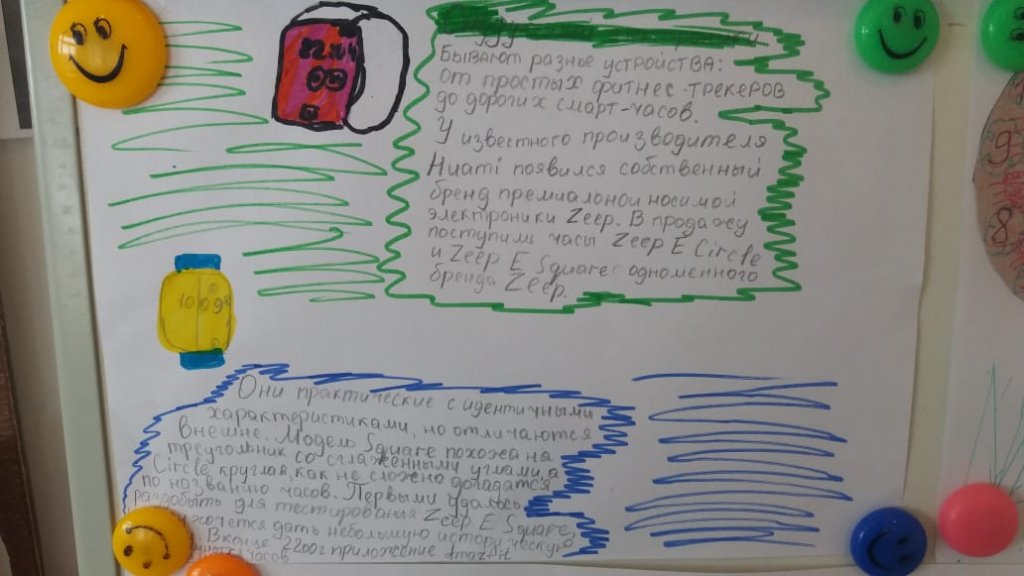 82:104
Бывают разные устройства:
от простых фитнес-трекеров
до дорогих смарт-часов.
У известного производителя
Huami появился собственный
бренд премиальной носимой
электроники Zeep. В продажу
поступили часы Zeep E Circle
и Zeep E Square одноменного
бренда Zeep.
10:09
Они практические с идентичными
характеристиками, но отличаются
внешне. Модель Square похожа на
треугольник со сглаженными углами, а
Circle круглая, как не сложно догадатся
по названию часов. Первыми удалось
раздобыть для тестирования Zeep E Square,
хочется дать небольшую историческую
В конце 2200г приложение
часов
9
8